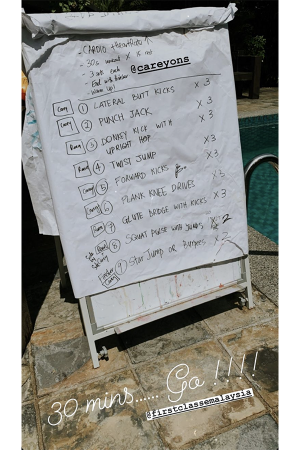 - CARDIO
- 30s workout X 15 rest
- 3 sets each
- End with
Warm Up!
@careyons
Carey ① LATERAL BUTT KICKS X 3
Carey ② PUNCH JACK X 3
③ DONKEY KICK WITH UPRIGHT HOP X 3
④ TWIST JUMP X 3
Carey ⑤ FORWARD KICKS X 3
Carey ⑥ PLANK KNEE DRIVES X 3
⑦ GLUTE BRIDGE WITH KICKS X 3
⑧ SQUAT PULSE WITH JUMPS X 2
Carey ⑨ Star Jump OR Burpees X 2
30 mins...... Go !!!!
@firstclassemalaysia